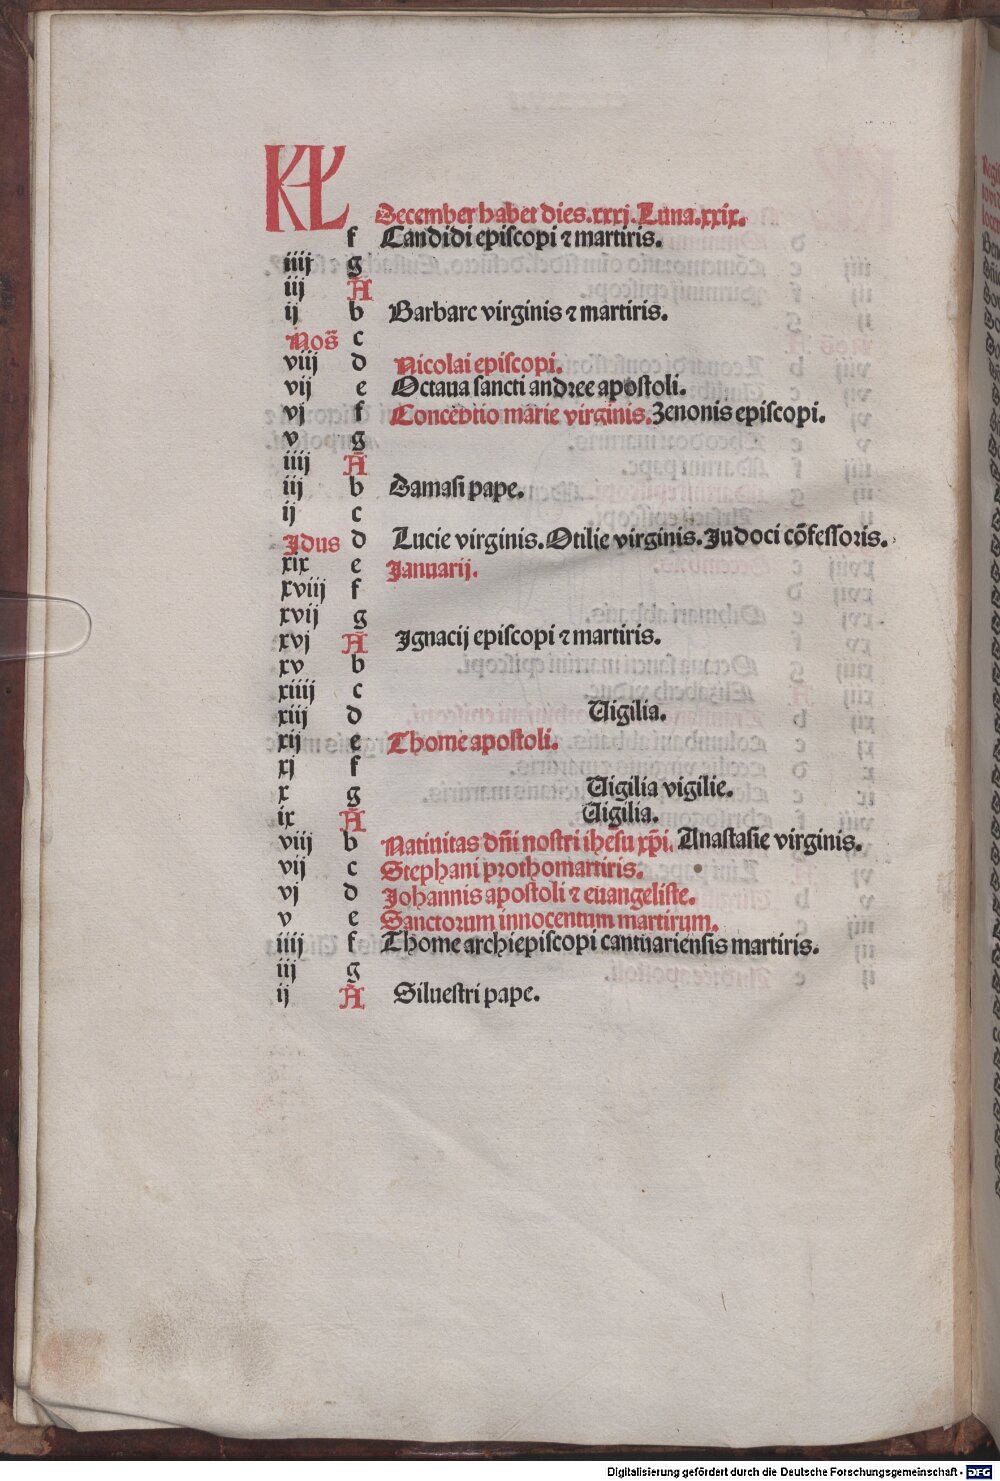 KL
December habet dies.xxxj.Luna.xxix.
f Candidi episcopi ⁊ martiris.
iiij g
iij A
ij b Barbare virginis ⁊ martiris.
Nos̄ c
viij d Nicolai episcopi.
vij e Octaua sancti andree apostoli.
vj f Conceptio marie virginis. Zenonis episcopi.
v g
iiij A
iij b Damasi pape.
ij c
Idus d Lucie virginis. Otilie virginis. Judoci cōfessoris.
xix e Januarij.
xviij f
xvij g
xvj A Ignacij episcopi ⁊ martiris.
xv b
xiiij c
xiij d Uigilia.
xij e Thome apostoli.
xj f
x g Uigilia vigilie.
ix A Uigilia.
viij b Natiuitas dn̄i nostri ihesu xp̄i. Anastasie virginis.
vij c Stephani prothomartiris.
vj d Johannis apostoli ⁊ euangeliste.
v e Sanctorum innocentum martirum.
iiij f Thome archiepiscopi cantuariensis martiris.
iij g
ij A Siluestri pape.
Digitalisierung gefördert durch die Deutsche Forschungsgemeinschaft - DFG